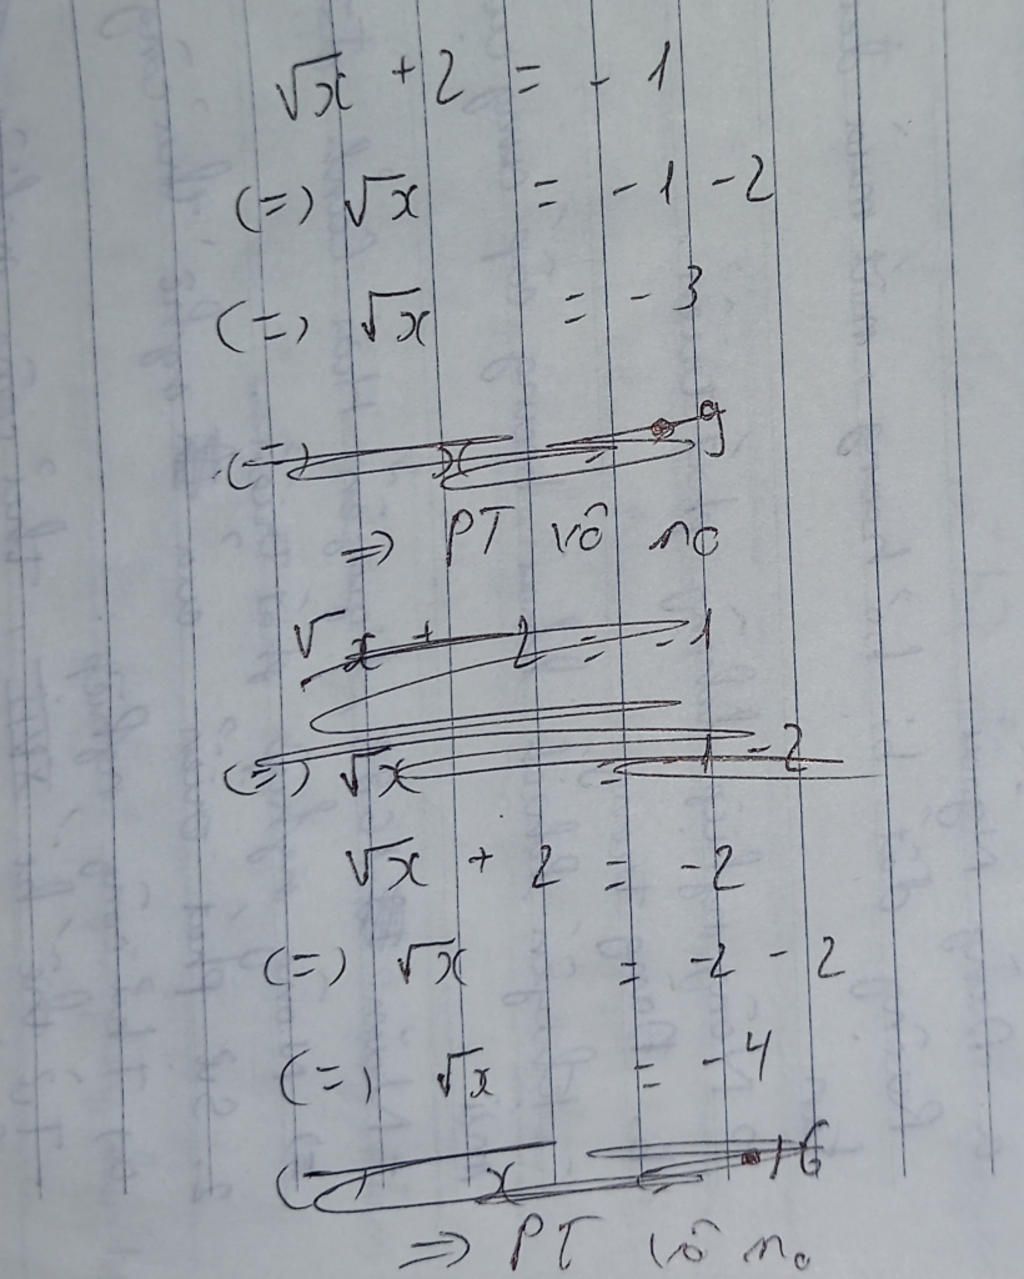 √x + 2 = - 1
(=) √x = - 1 - 2
(=) √x = - 3
(=) x = 9
=> PT vô no
√x + 2 = - 1
(=) √x = - 1 - 2
√x + 2 = -2
(=) √x = -2 - 2
(=) √x = - 4
(=) x = 16
=> PT vô no